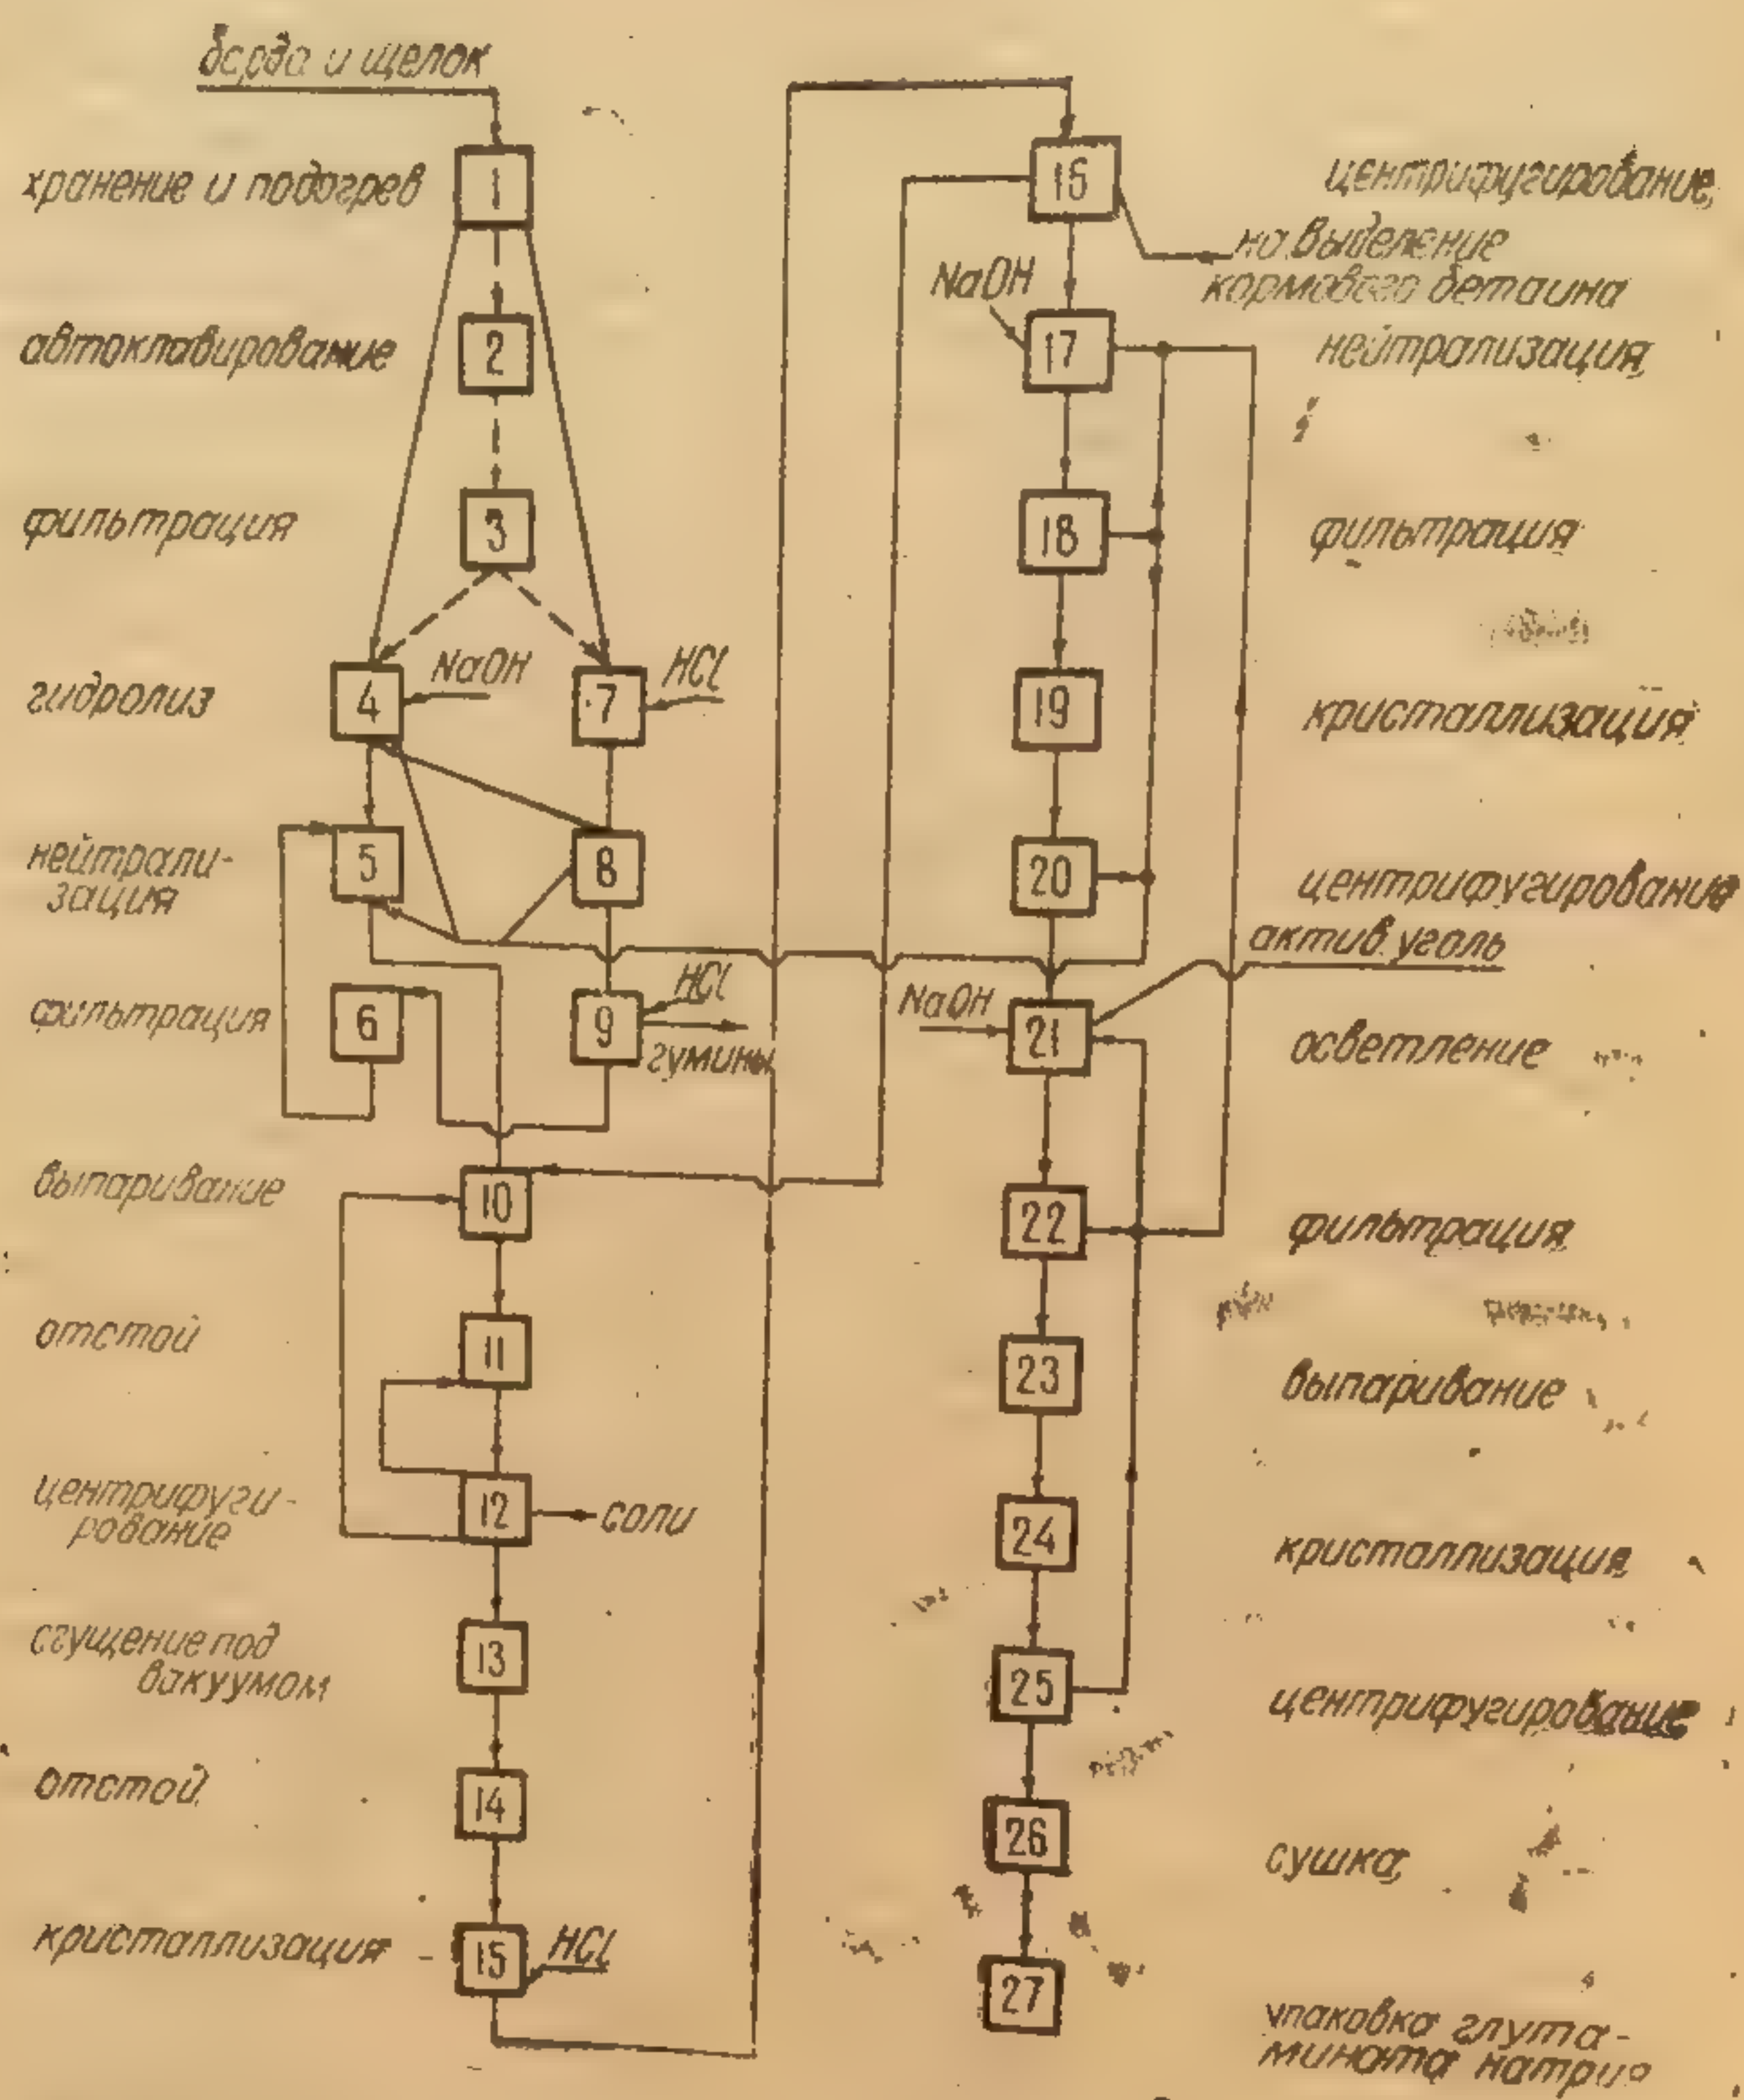 барда и щелок
хранение и подогрев
1
автоклавирование
2
фильтрация
3
гидролиз
4
NaOH
7
HCl
нейтрали-
зация
5
8
фильтрация
6
9
HCl
гумины
выпаривание
10
отстой
11
центрифуги-
рование
12
соли
сгущение под
вакуумом
13
отстой
14
кристаллизация
15
HCl
16
центрифугирование
на выделение
кормового бетаина
NaOH
17
нейтрализация
18
фильтрация
19
кристаллизация
20
центрифугирование
актив. уголь
NaOH
21
осветление
22
фильтрация
23
выпаривание
24
кристаллизация
25
центрифугирование
26
сушка
27
упаковка глута-
мината натрия